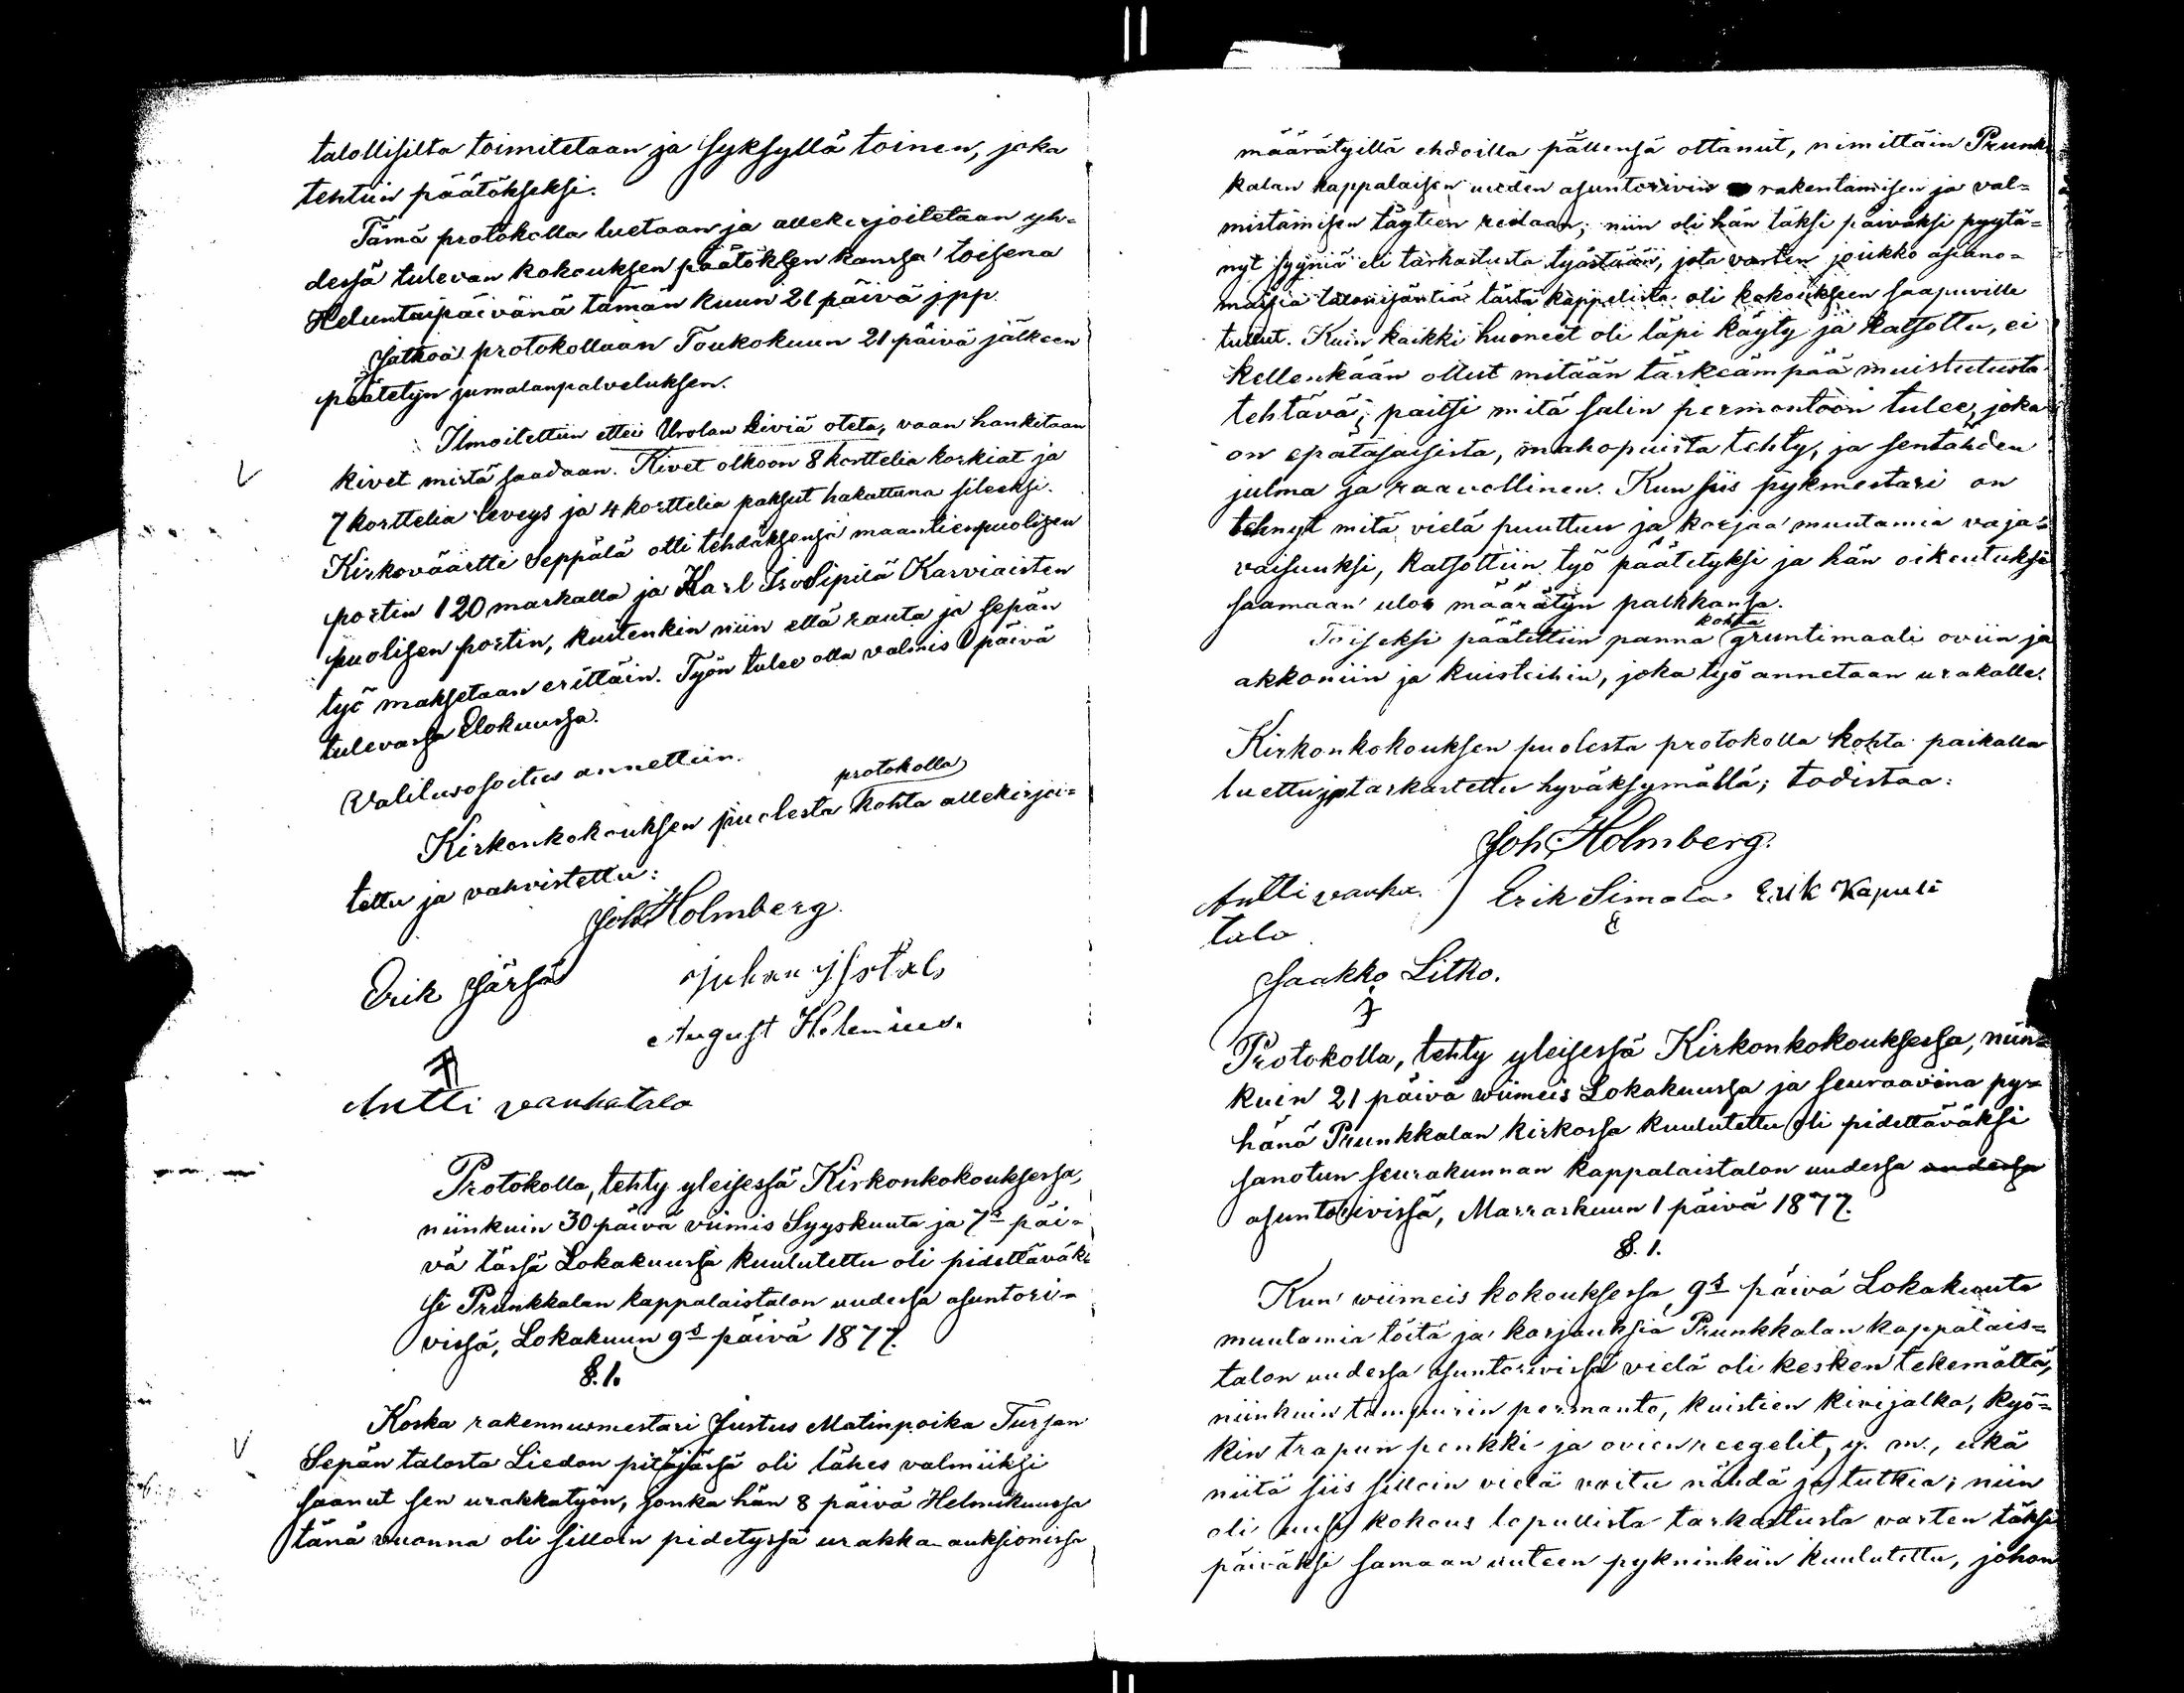 talollisilta toimitetaan ja syksyllä toinen, joka
tehtiin päätökseksi.
Tämä protokolla luetaan ja allekirjoitetaan yh-
dessä tulevan kokouksen päätöksen kanssa toisena
Heluntaipäivänä tämän kuun 21 päivä jpp.
Jatkoa protokollaan Toukokuun 21 päivä jälkeen
päätetyn jumalanpalveluksen.
Ilmoitettiin ettei Urolan kiviä oteta, vaan hankitaan
kivet mistä saadaan. Kivet olkoon 8 korttelia korkiat ja
7 korttelia leveys ja 4 korttelia paksut hakattuna sileeksi.
Kirkoväärtti Seppälä otti tehdäksensä maantienpuolisen
portin 120 markalla ja Karl IsoSipilä Karviaisten
puolisen portin, kuitenkin niin että rauta ja sepän
työ maksetaan erittäin. Työn tulee olla valmis 1 päivä
tulevassa Elokuussa.
Valitusosoitus annettiin.
protokolla
Kirkonkokouksen puolesta kohta allekirjoi-
tettu ja vahvistettu:
Joh. Holmberg.
Erik Järsä
August Helenius.
Antti vanhatalo
Protokolla, tehty yleisessä Kirkonkokouksessa,
niinkuin 30 päivä viimis Syyskuuta ja 7s päi-
vä tässä Lokakuussa kuulutettu oli pidettäväk-
si Prunkkalan kappalaistalon uudessa asuntori-
vissä, Lokakuun 9s päivä 1877.
§. 1.
Koska rakennusmestari Justus Matinpoika Tursan
Sepän talosta Liedon pitäjässä oli lähes valmiiksi
saanut sen urakkatyön, jonka hän 8 päivä Helmikuussa
tänä vuonna oli silloin pidetyssä urakka-auksionissa
määrätyillä ehdoilla pällensä ottanut, nimittäin Prunk-
kalan kappalaisen uuden asuntorivin rakentamisen ja val-
mistamisen täyteen reilaan; niin oli hän täksi päiväksi pyytä-
nyt syyniä eli tarkastusta työstään, jota varten joukko asiano-
maisia talonisäntiä tästä kappelista oli kokoukseen saapuville
tullut. Kuin kaikki huoneet oli läpi käyty ja katsottu, ei
kellenkään ollut mitään tärkeämpää muistutusta
tehtävä; paitsi mitä salin permantoon tulee, joka
on epätasaisista, mahopuista tehty, ja sentähden
julma ja raavollinen. Kun siis pykmestari on
tehnyt mitä vielä puuttuu ja korjaa muutamia vaja-
vaisuuksi, katsottiin työ päätetyksi ja hän oikeutuksi
saamaan ulos määrätyn palkkansa.
kohta
Toiseksi päätettiin panna gruntimaali oviin ja
akkoniin ja kuisteihin, joka työ annetaan urakalla.
Kirkonkokouksen puolesta protokolla kohta paikalla
luettu ja tarkastettu hyväksymällä; todistaa:
Joh. Holmberg.
Antti vanha Erik Simola Erik Kapuli
talo
Jaakko Litko.
Protokolla, tehty yleisessä Kirkonkokouksessa, niin-
kuin 21 päivä wiimeis Lokakuussa ja seuraavina py-
hänä Prunkkalan kirkossa kuulutettu oli pidettäväksi
sanotun seurakunnan kappalaistalon uudessa uudessa
asuntorivissä, Marraskuun 1 päivä 1877.
§. 1.
Kun wiimeis kokouksessa, 9s päivä Lokakuuta
muutamia töitä ja korjauksia Prunkkalan kappalais-
talon uudessa asuntorivissä vielä oli kesken tekemättä,
niinkuin tampurin permanto, kuistien kivijalka, kyö-
kin trapun penkki ja ovien reegelit, y. m., eikä
niitä siis silloin vielä voitu nähdä ja tutkia; niin
oli uusi kokous lopullista tarkastusta varten täksi
päiväksi samaan uuteen pykninkiin kuulutettu, johon